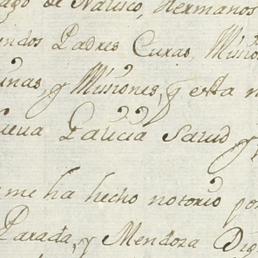 ago de Xalisco, Hermanos
endos Padres Curas, Misio
inas, y Misiones, y esta n
ueva Galicia Salud y
me ha hecho notorio po
Parada, y Mendoza Dig